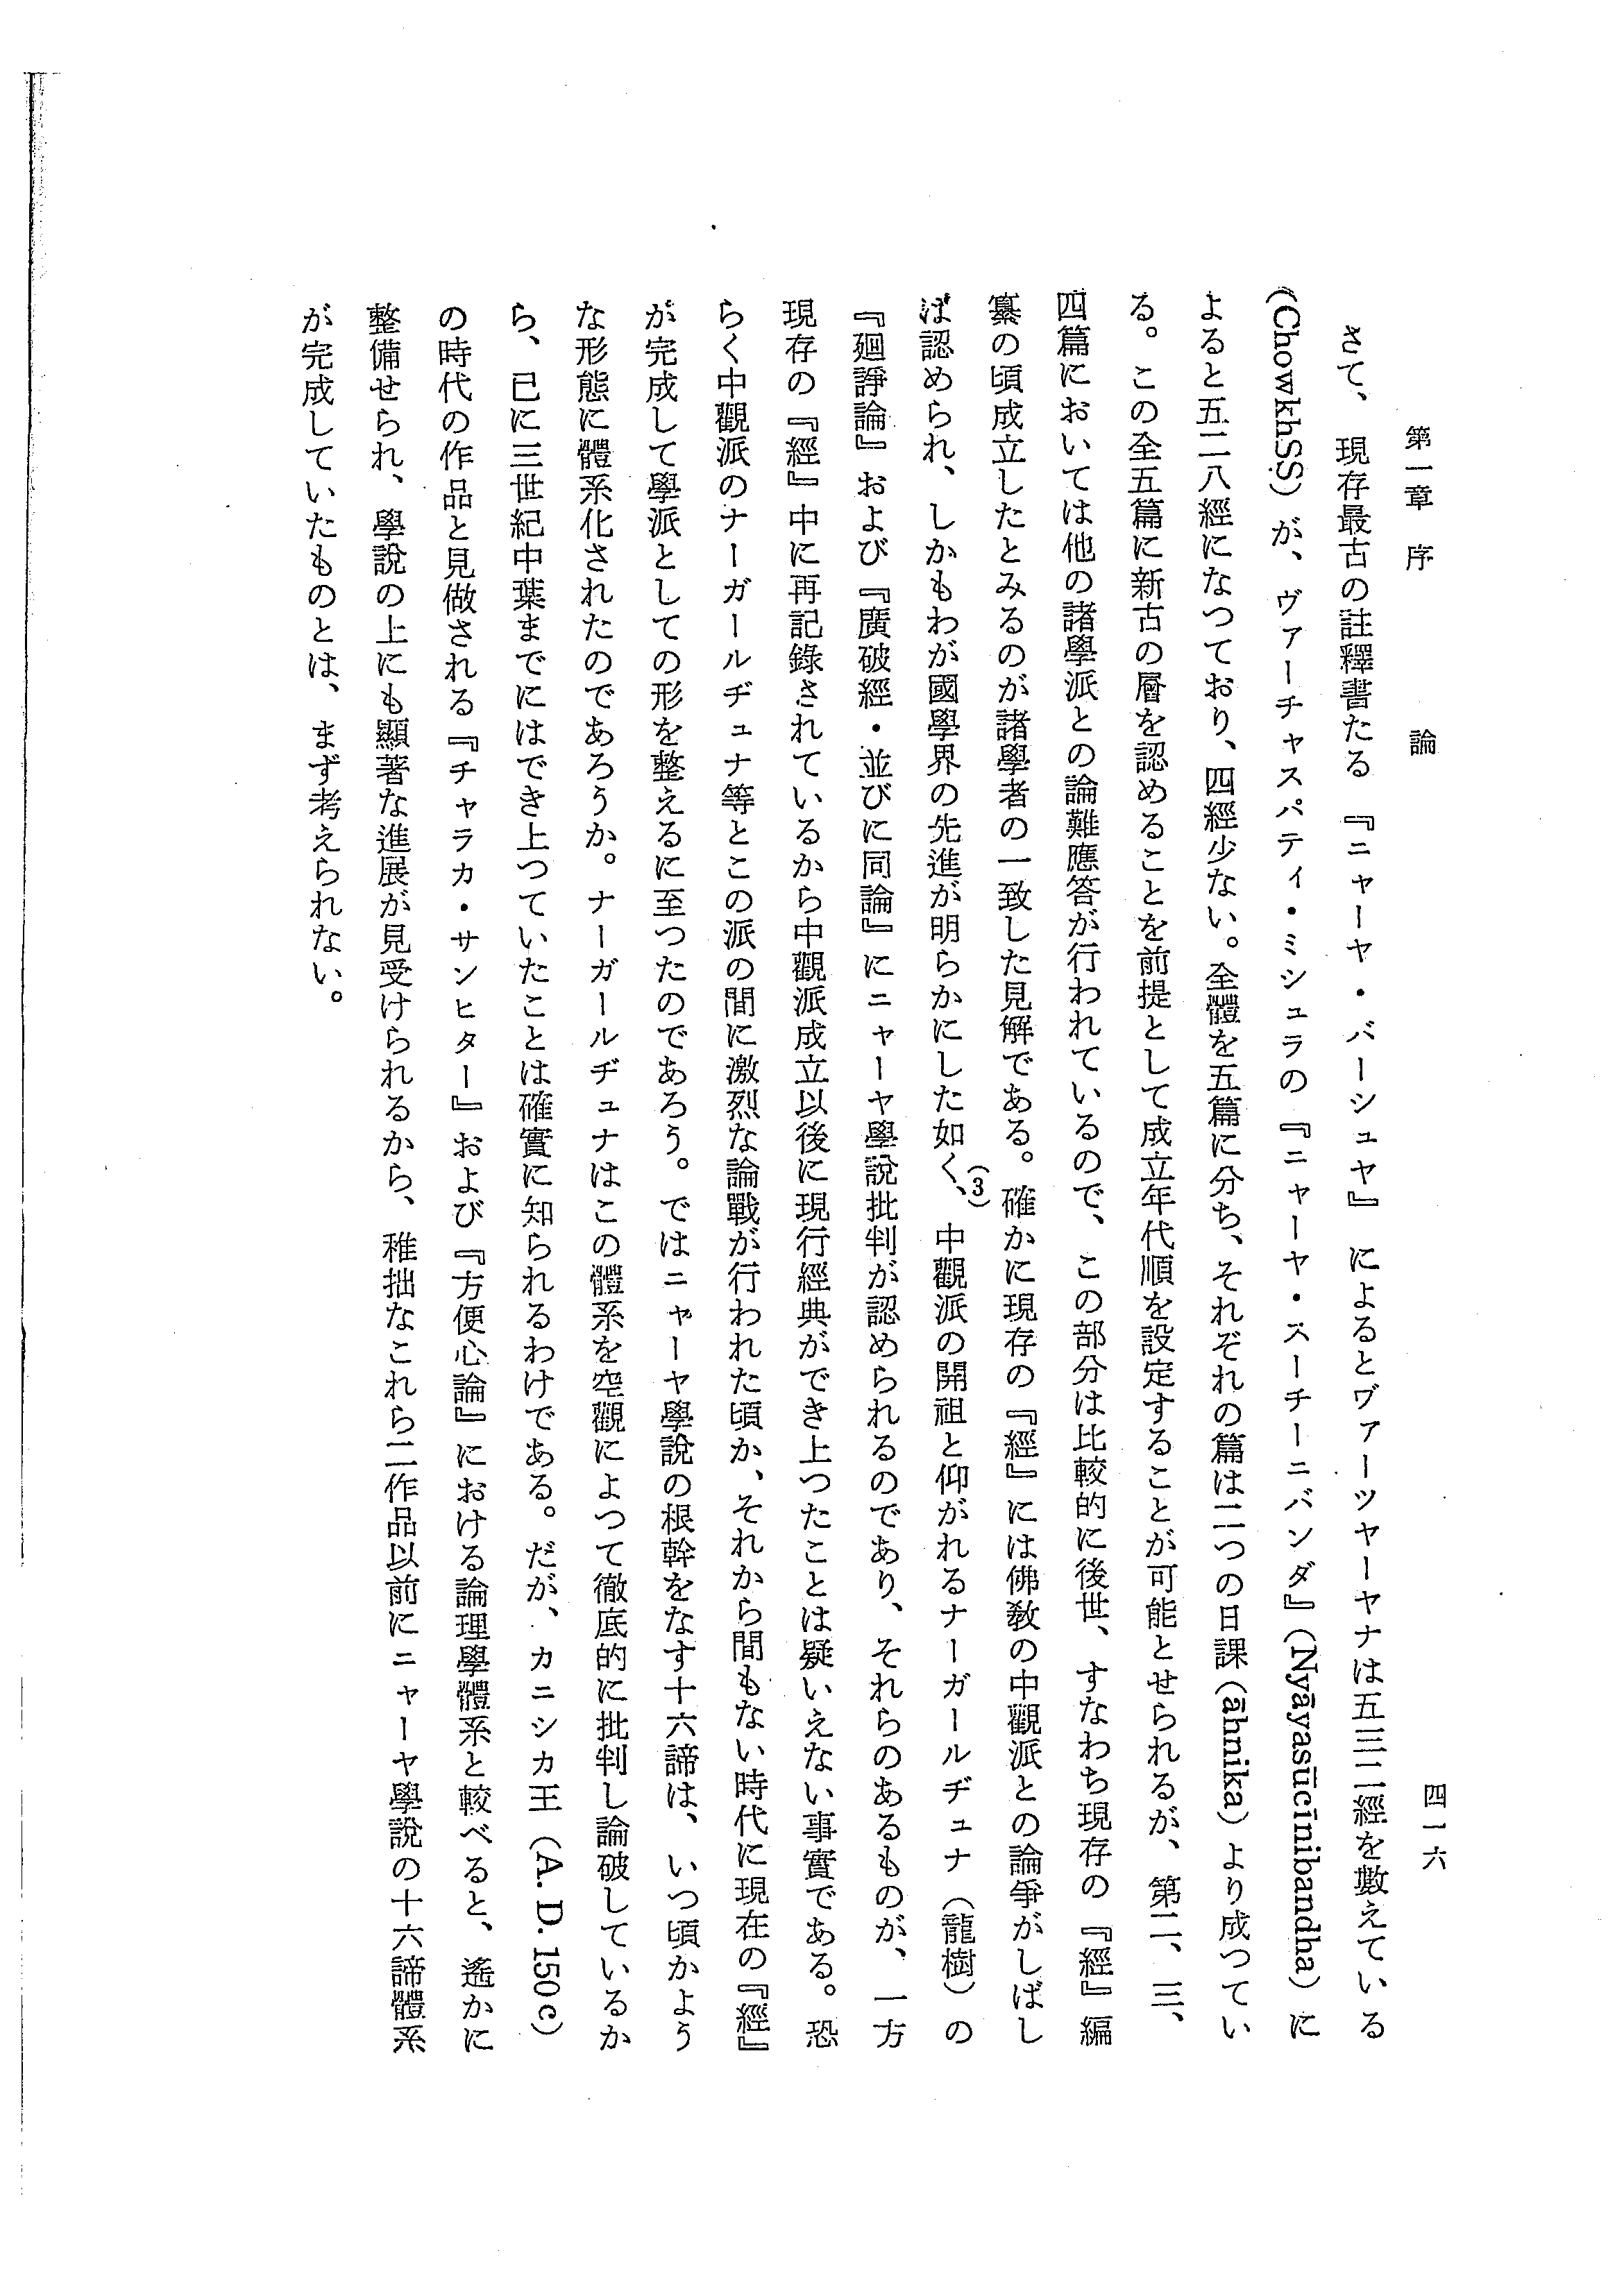 第一章　序　　　論
四一六
さて、現存最古の註釋書たる『ニャーヤ・バーシュヤ』によるとヴァーツヤーヤナは五三二經を數えている
(ChowkhSS) が、ヴァーチャスパティ・ミシュラの『ニャーヤ・スーチーニバンダ』(Nyāyasūcīnibandha) に
よると五二八經になつており、四經少ない。全體を五篇に分ち、それぞれの篇は二つの日課 (āhnika) より成つてい
る。この全五篇に新古の層を認めることを前提として成立年代順を設定することが可能とせられるが、第二、三、
四篇においては他の諸學派との論難應答が行われているので、この部分は比較的に後世、すなわち現存の『經』編
纂の頃成立したとみるのが諸學者の一致した見解である。確かに現存の『經』には佛敎の中觀派との論爭がしばし
ば認められ、しかもわが國學界の先進が明らかにした如く、(3)中觀派の開祖と仰がれるナーガールヂュナ（龍樹）の
『廻諍論』および『廣破經・並びに同論』にニャーヤ學說批判が認められるのであり、それらのあるものが、一方
現存の『經』中に再記錄されているから中觀派成立以後に現行經典ができ上つたことは疑いえない事實である。恐
らく中觀派のナーガールヂュナ等とこの派の間に激烈な論戰が行われた頃か、それから間もない時代に現在の『經』
が完成して學派としての形を整えるに至つたのであろう。ではニャーヤ學說の根幹をなす十六諦は、いつ頃かよう
な形態に體系化されたのであろうか。ナーガールヂュナはこの體系を空觀によつて徹底的に批判し論破しているか
ら、已に三世紀中葉までにはでき上つていたことは確實に知られるわけである。だが、カニシカ王 (A. D. 150 c)
の時代の作品と見做される『チャラカ・サンヒター』および『方便心論』における論理學體系と較べると、遙かに
整備せられ、學說の上にも顯著な進展が見受けられるから、稚拙なこれら二作品以前にニャーヤ學說の十六諦體系
が完成していたものとは、まず考えられない。